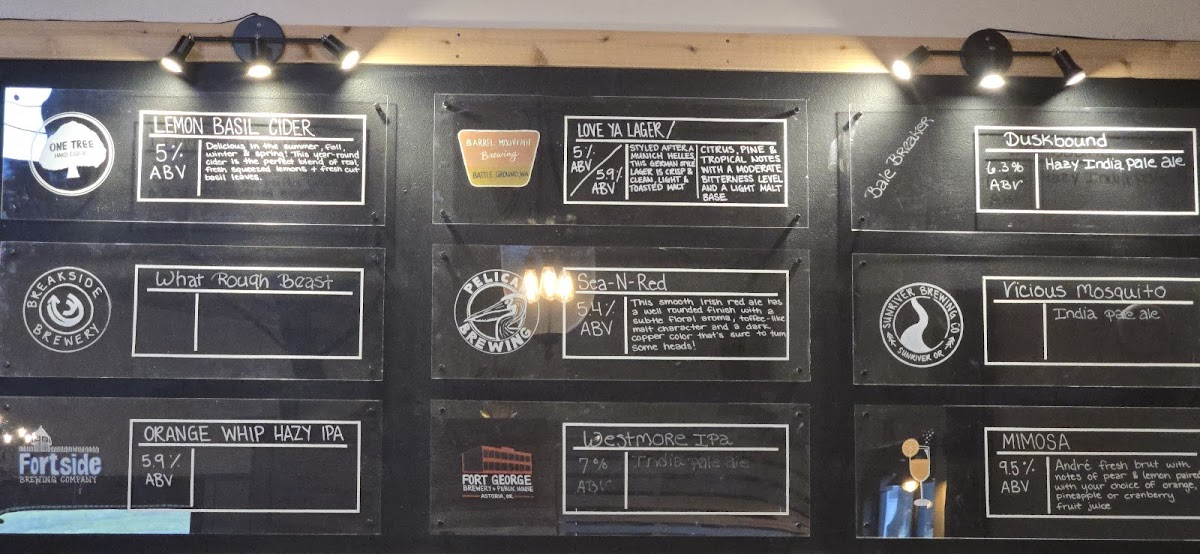 ONE TREE
HARD CIDER
LEMON BASIL CIDER
5%
ABV
Delicious in the summer, fall,
winter & spring! This year-round
cider is the perfect blend of real,
fresh squeezed lemons + fresh cut
basil leaves.
BARREL MOUNTAIN
Brewing
BATTLE GROUND, WA
LOVE YA LAGER/
5%
ABV
5.9%
ABV
STYLED AFTER A
MUNICH HELLES,
THIS GERMAN STYLE
LAGER IS CRISP &
CLEAN, LIGHT &
TOASTED MALT
CITRUS, PINE &
TROPICAL NOTES
WITH A MODERATE
BITTERNESS LEVEL
AND A LIGHT MALT
BASE.
Bale Breaker
Duskbound
6.3%
ABV
Hazy India pale ale
BREAKSIDE
BREWERY
What Rough Beast
PELICAN
BREWING
Sea-N-Red
5.4%
ABV
This smooth Irish red ale has
a well rounded finish with a
subtle floral aroma, toffee-like
malt character and a dark
copper color that's sure to turn
some heads!
SUNRIVER BREWING CO
SUNRIVER OR
Vicious Mosquito
India pale ale
Fortside
BREWING COMPANY
ORANGE WHIP HAZY IPA
5.9%
ABV
FORT GEORGE
BREWERY + PUBLIC HOUSE
ASTORIA, OR.
Westmore IPA
7%
ABV
India pale ale
MIMOSA
9.5%
ABV
André fresh brut with
notes of pear & lemon paired
with your choice of orange,
pineapple or cranberry
fruit juice